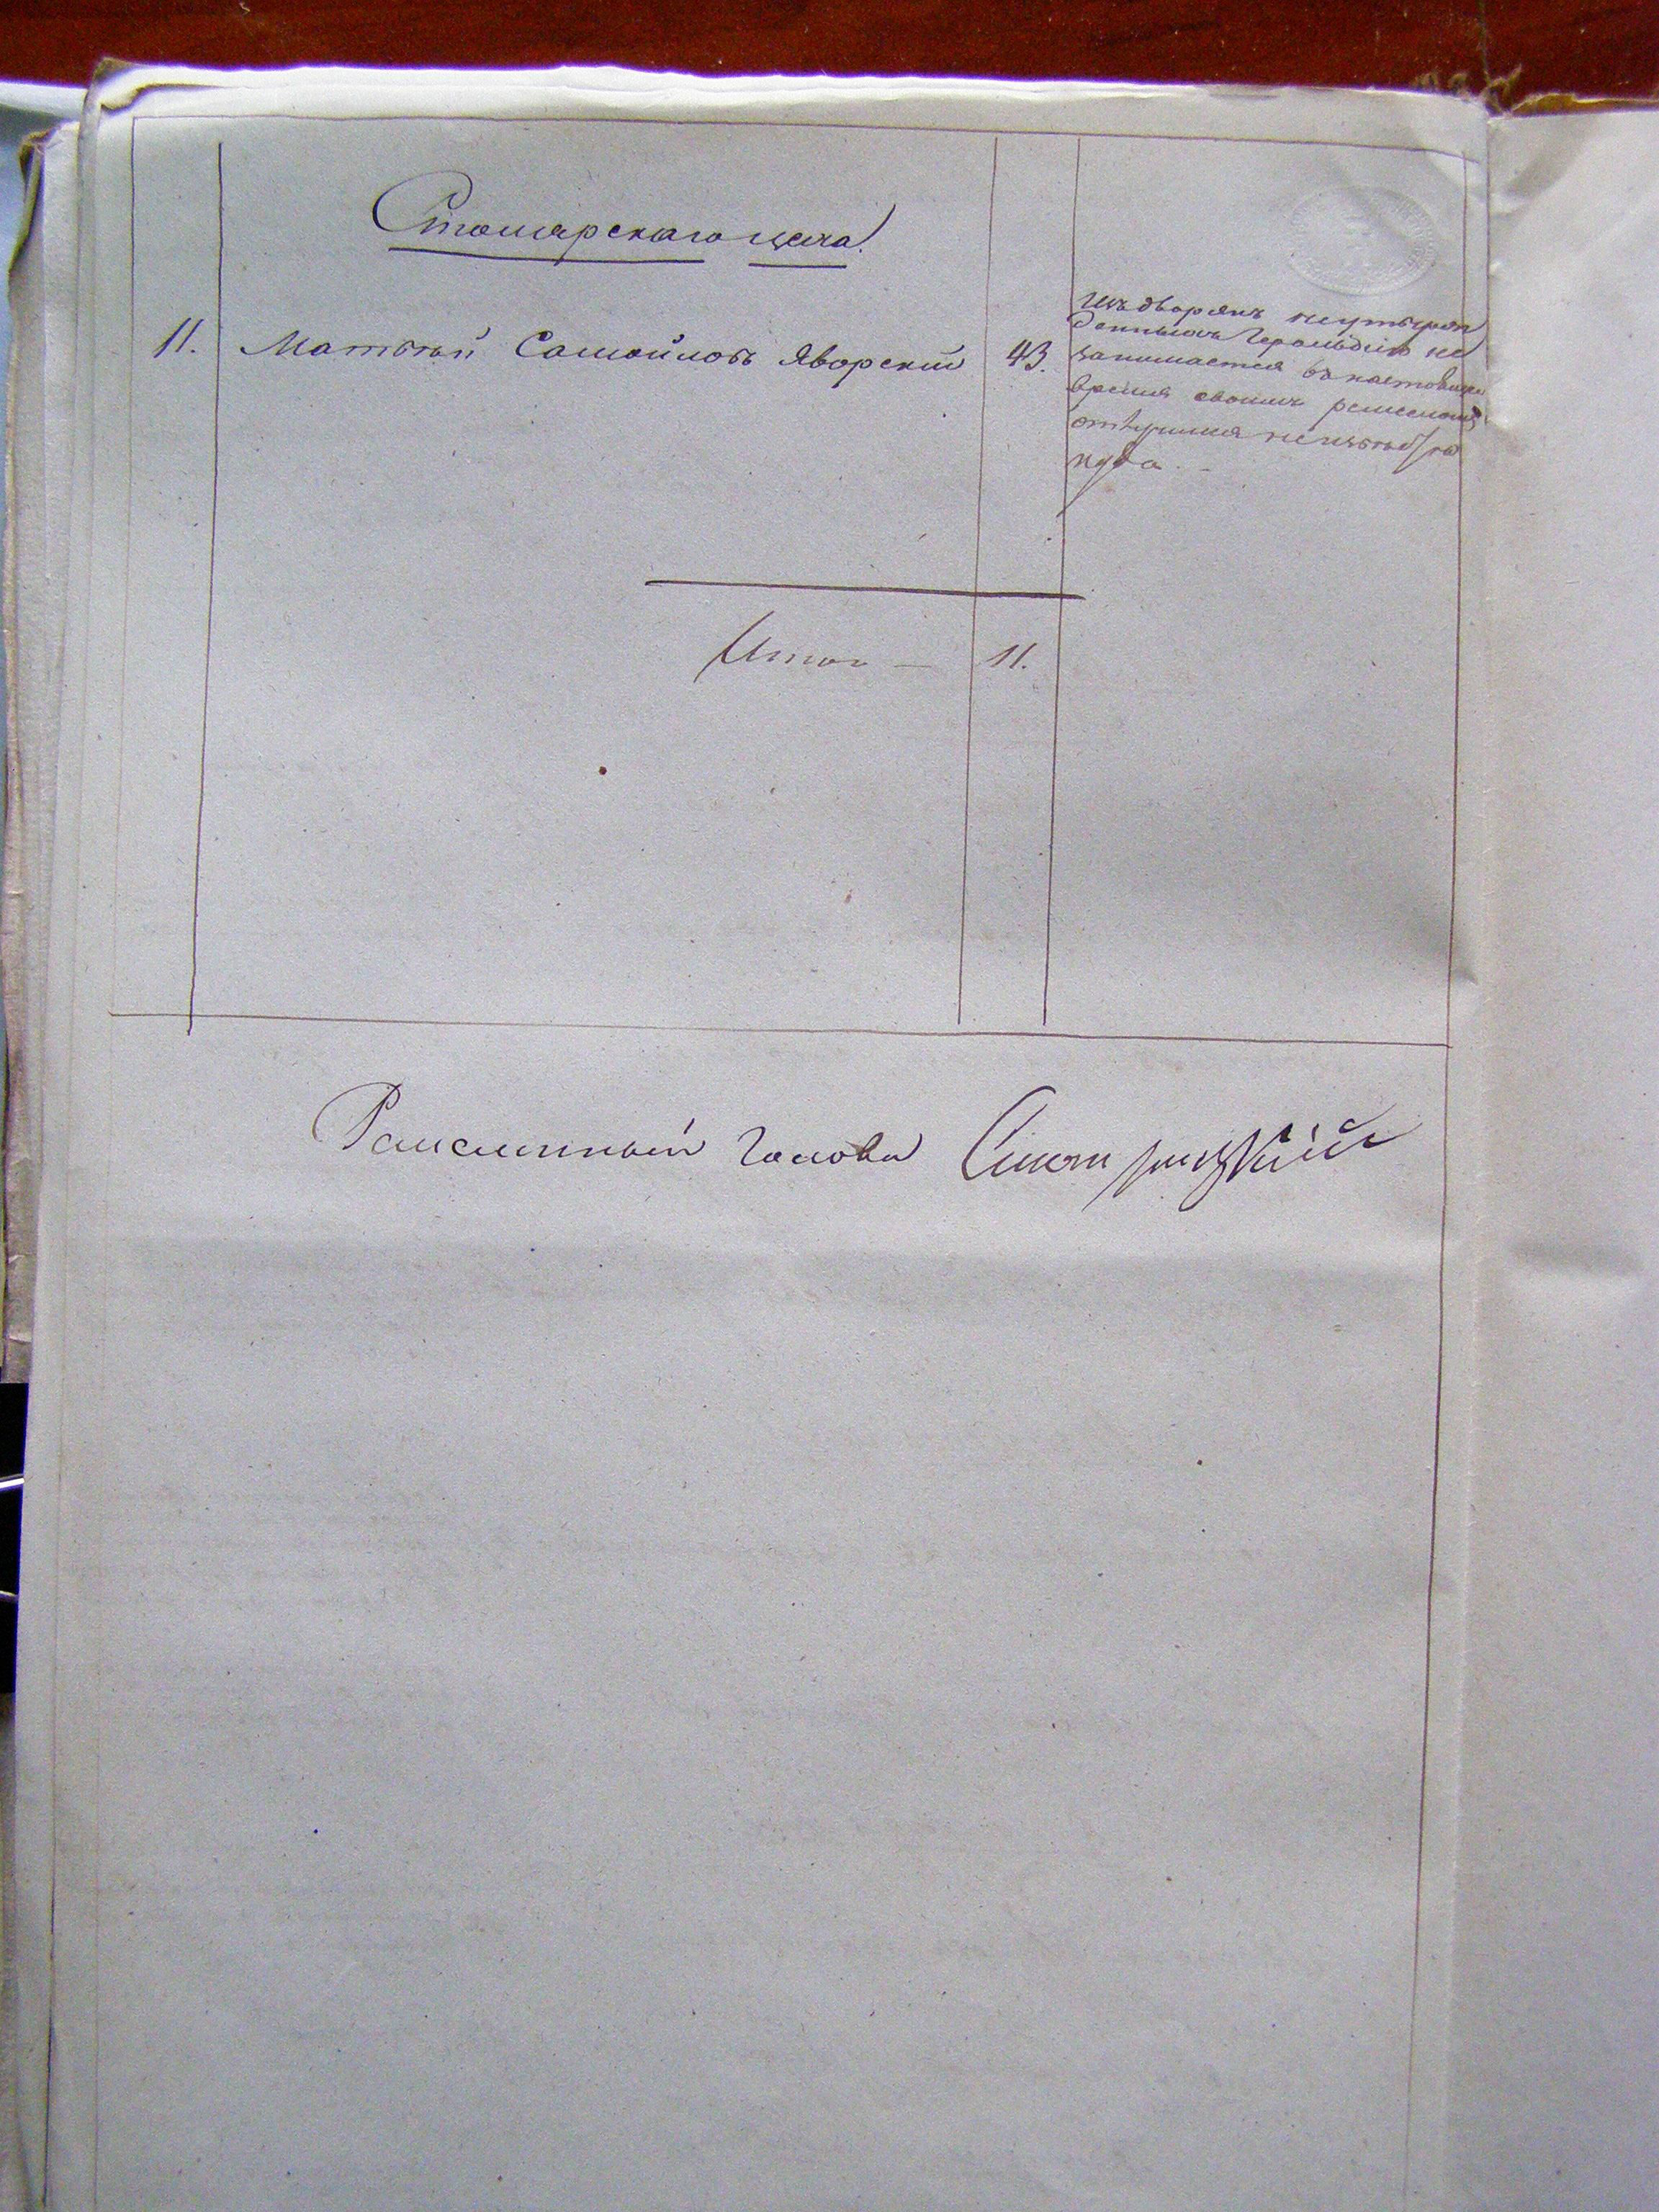 Столярскаго цеха.
11. Матвѣй Самойловъ Яворскій 43.
Изъ дворянъ неутверж
денныхъ Герольдіею не
занимается въ настоящее
время своимъ ремесломъ
отлучился неизвѣстно
куда. –
Итого — 11.
Ремесленный Голова